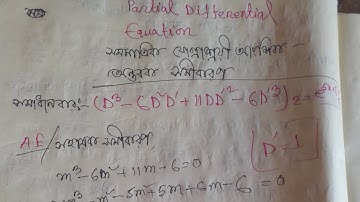 Partial Differential
Equation
সমমাত্রিক রৈখিক আংশিক
অন্তরক সমীকরণ
সমাধান কর:- (D³ - 6D²D' + 11DD'² - 6D'³) z =
A.E / সহায়ক সমীকরণ, D' = 1
m³ - 6m² + 11m - 6 = 0
m³ - m² - 5m² + 5m + 6m - 6 = 0